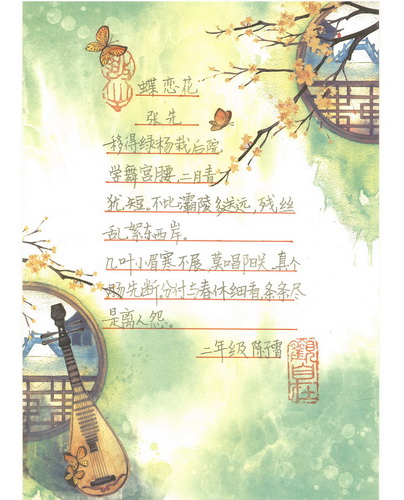 蝶恋花
张先
移得绿杨栽后院
学舞宫腰,二月青
犹短。不比灞陵多送远,残丝
乱絮东西岸。
几叶小眉寒不展,莫唱阳关,真个
肠先断,分付与春休细看,条条尽
是离人怨。
二年级 陈雪